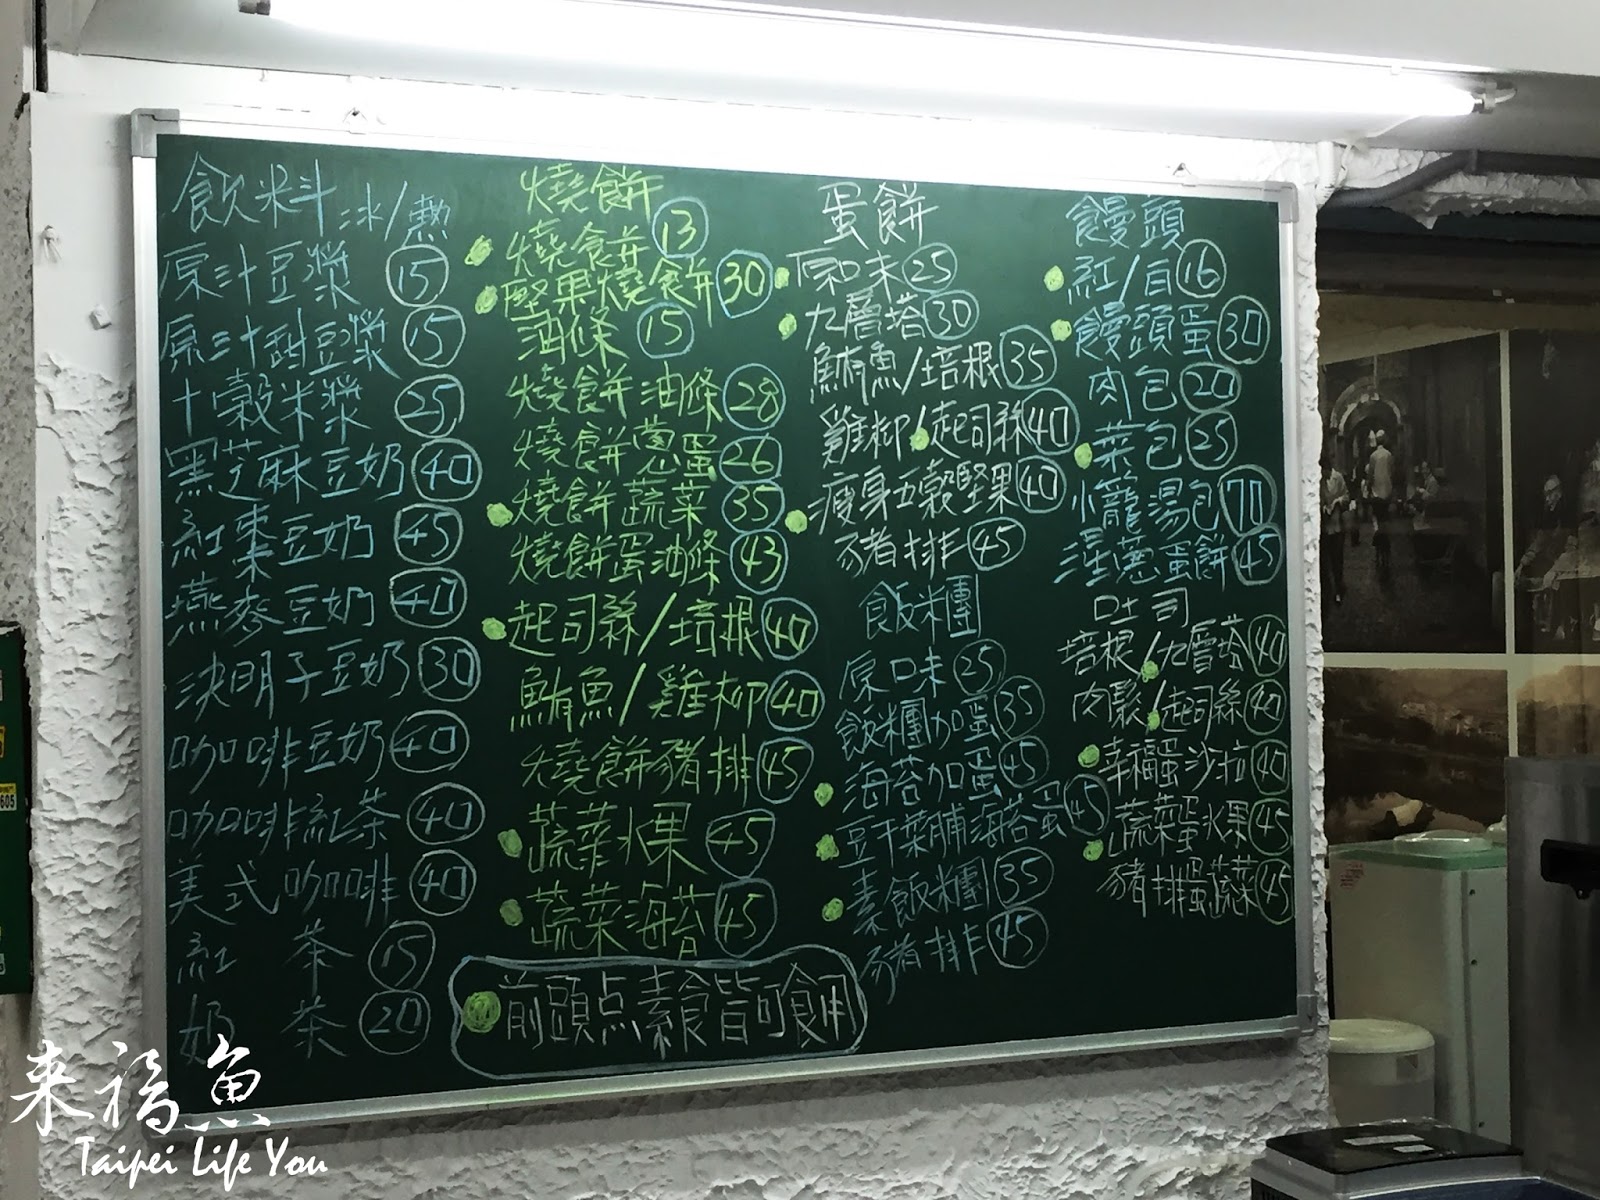 飲料 冰/熱
原汁豆漿 15
原汁甜豆漿 15
十穀米漿 25
黑芝麻豆奶 40
紅棗豆奶 45
燕麥豆奶 40
決明子豆奶 30
咖啡豆奶 40
咖啡紅茶 40
美式咖啡 40
紅茶 15
奶茶 20
燒餅
燒餅 13
堅果燒餅 30
油條 15
燒餅油條 28
燒餅蔥蛋 26
燒餅蔬菜 35
燒餅蛋油條 43
起司絲/培根 40
鮪魚/雞柳 40
燒餅豬排 45
蔬菜水果 45
蔬菜海苔 45
前頭点素食皆可食用
蛋餅
原口味 25
九層塔 30
鮪魚/培根 35
雞柳/起司絲 40
瘦身五穀堅果 40
豬排 45
飯糰
原口味 25
飯糰加蛋 35
海苔加蛋 45
豆干菜脯海苔蛋 45
素飯糰 35
豬排 45
饅頭
紅/白 16
饅頭蛋 30
肉包 20
菜包 25
小籠湯包 70
淫蔥蛋餅 45
吐司
培根/九層塔 40
肉鬆/起司絲 40
幸福蛋沙拉 40
蔬菜蛋水果 45
豬排蛋蔬菜 45
来福魚
Taipei Life You
605